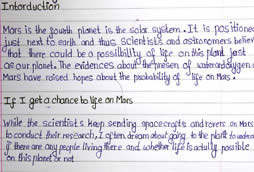 Intorduction
Mars is the fourth planet is the solar system. It is positioned
just next to earth and thus scientists and astronomers believ
that there could be a possibility of life on this plant just
as our planet. The evidences about the presen of water and oxygen o
Mars have raised hopes about the probability of "life on Mars"
If I get a chance to life on Mars
While the scientists keep sending spacecrafts and rovers on Mars
to conduct their research, I often dream about going to the plant to
if there are any people living there and whether life is actully possible
on this planet or not